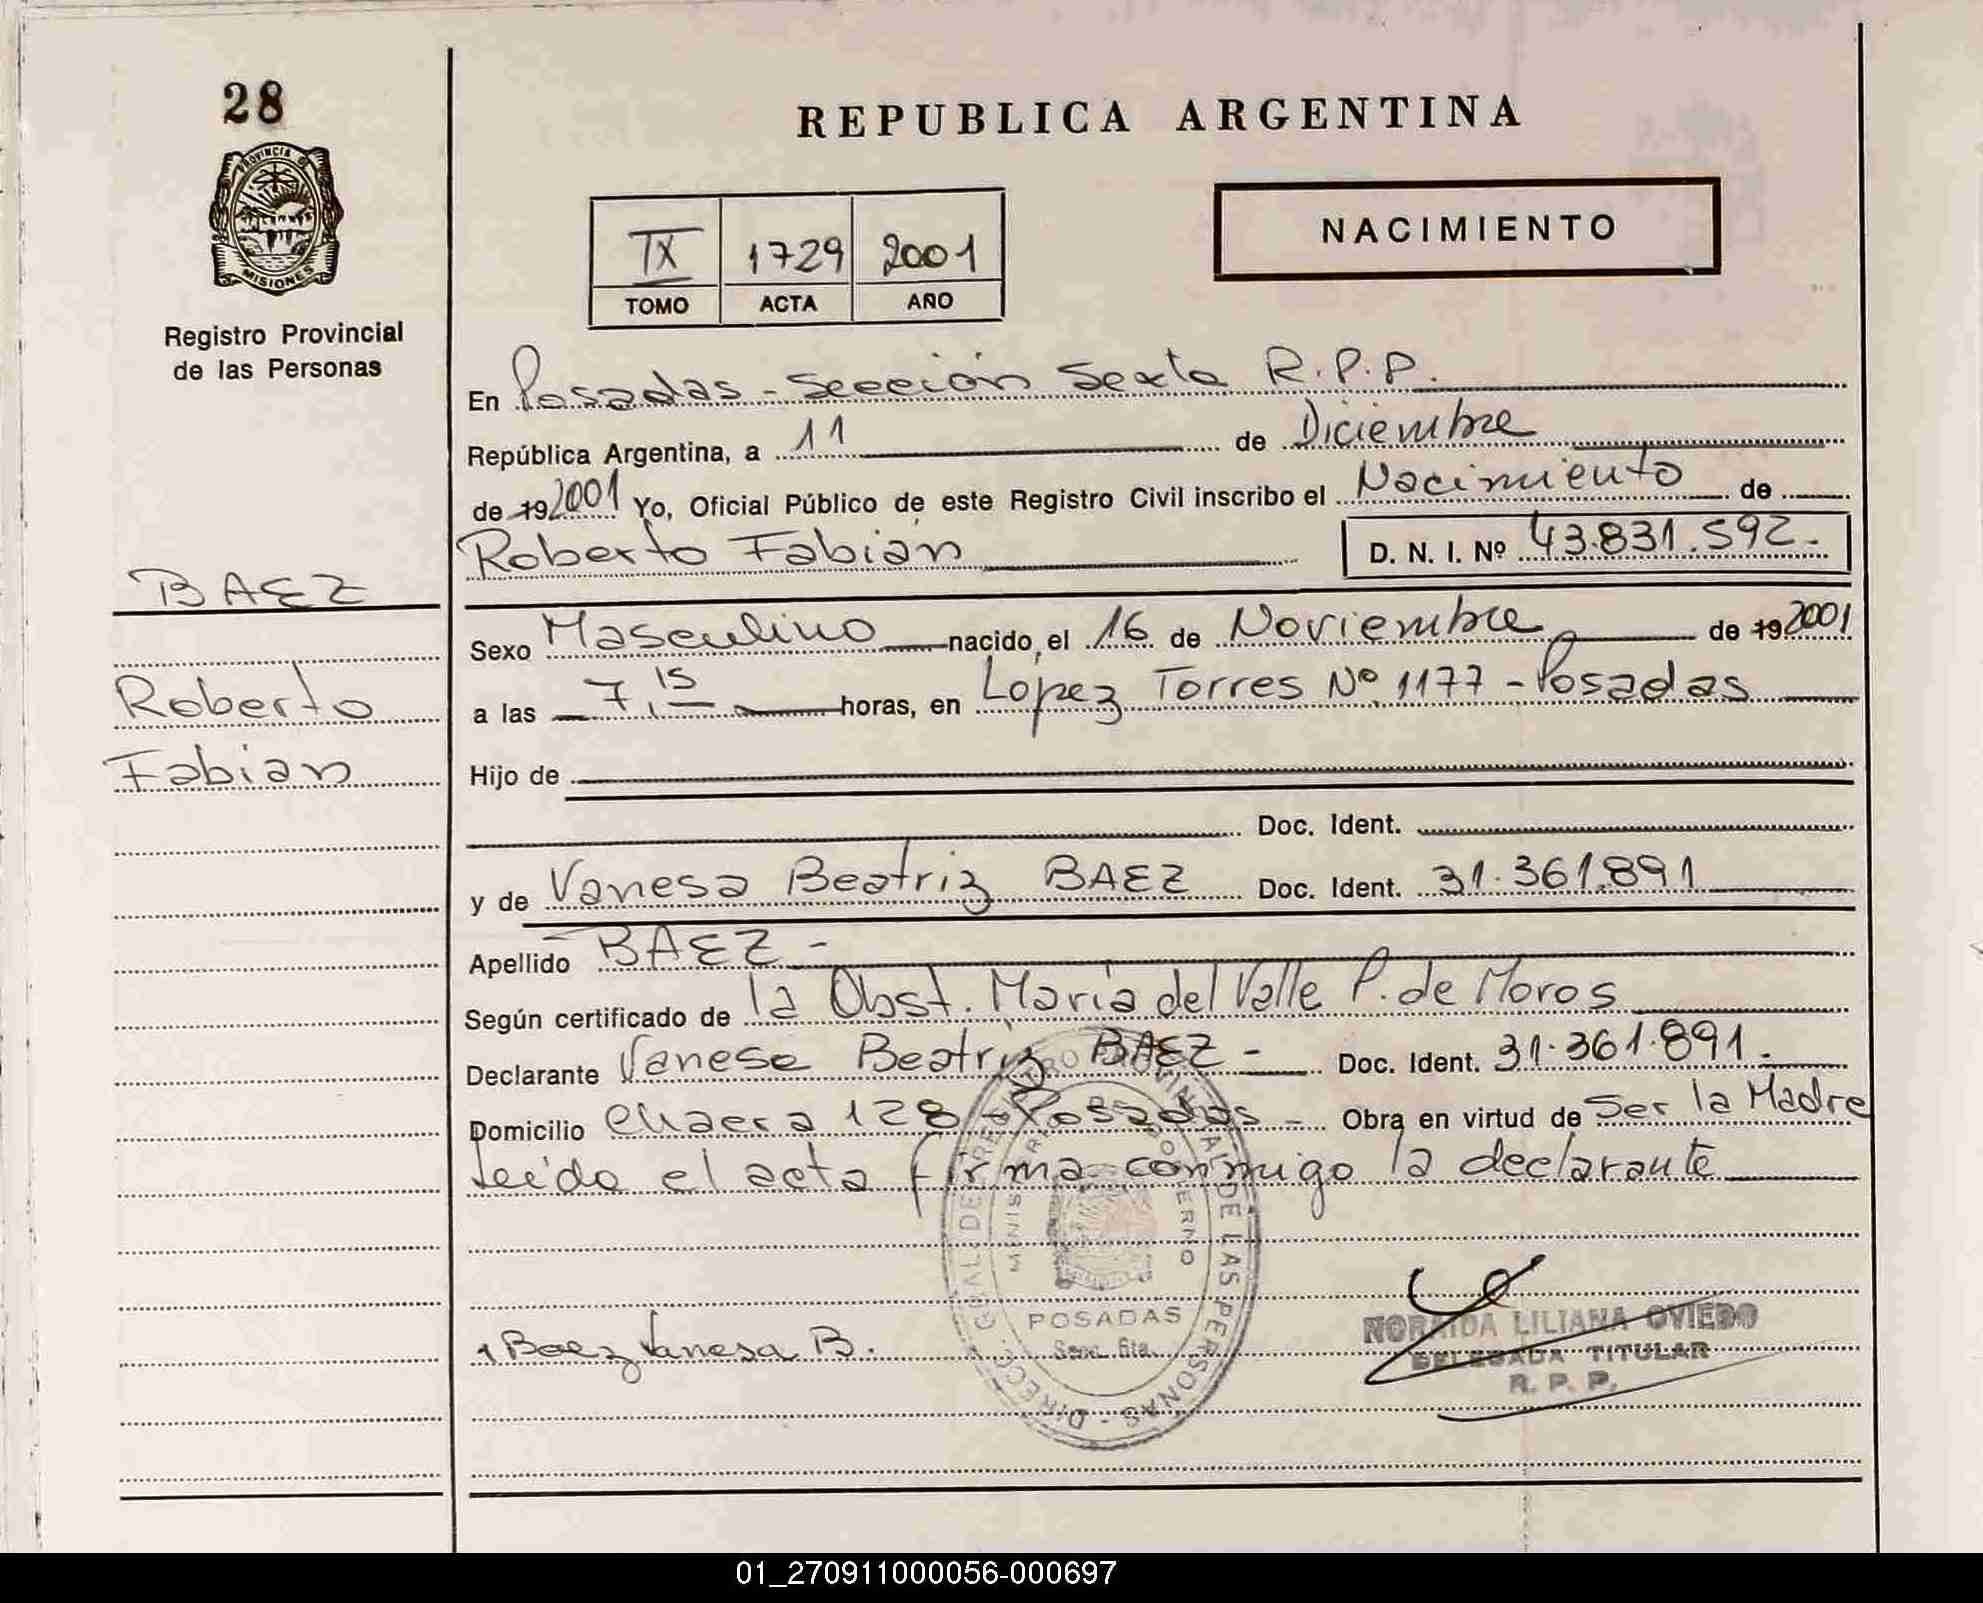 28
REPUBLICA ARGENTINA
PROVINCIA DE
MISIONES
NACIMIENTO
TX 1729 2001
TOMO ACTA AÑO
Registro Provincial
de las Personas
En Posadas - Sección Sexta R.P.P.
República Argentina, a 11 de Diciembre
de 19 2001 Yo, Oficial Público de este Registro Civil inscribo el Nacimiento de
Roberto Fabián D. N. I. Nº 43.831.592.-
BAEZ
Roberto
Fabián
Sexo Masculino nacido el 16 de Noviembre de 19 2001
a las 7,15 horas, en Lopez Torres Nº 1177 - Posadas
Hijo de
Doc. Ident.
y de Vanesa Beatriz BAEZ Doc. Ident. 31.361.891
Apellido BAEZ -
Según certificado de la Obst. María del Valle P. de Moros
Declarante Vanesa Beatriz BAEZ - Doc. Ident. 31.361.891.-
Domicilio 128 - Posadas - Obra en virtud de Ser la Madre
Leída el acta firma conmigo la declarante
DIRECC. GRAL. DE REGISTRO PROVINCIAL DE LAS PERSONAS -
MINISTERIO GOBIERNO
POSADAS
Secc. 6ta.
Baez Vanesa B.
NORAIDA LILIANA OVIEDO
DELEGADA TITULAR
R. P. P.
01_270911000056-000697